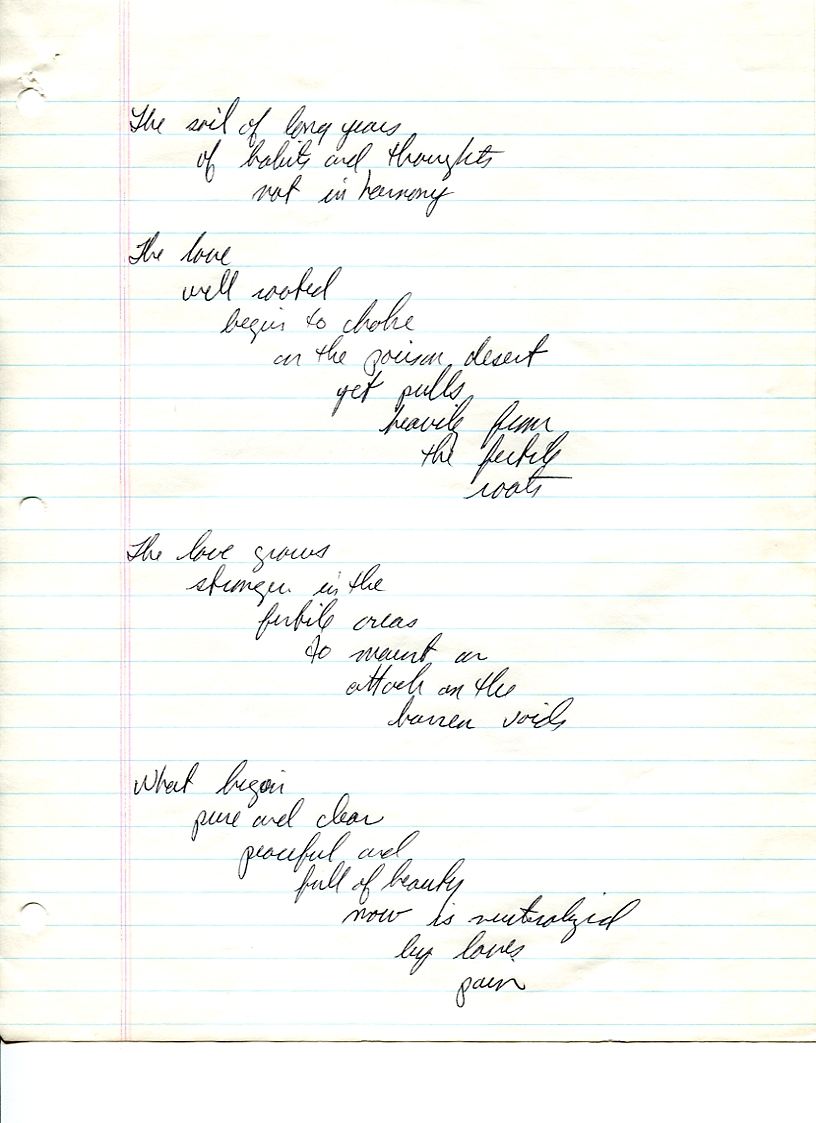 The soil of long years
of habits and thoughts
not in harmony
The love
well rooted
begin to choke
on the poison desert
yet pulls
heavily from
the fertile
roots
The love grows
stronger in the
fertile areas
to mount an
attack on the
barren voids
What began
pure and clear
peaceful and
full of beauty
now is neutralized
by loves
pain